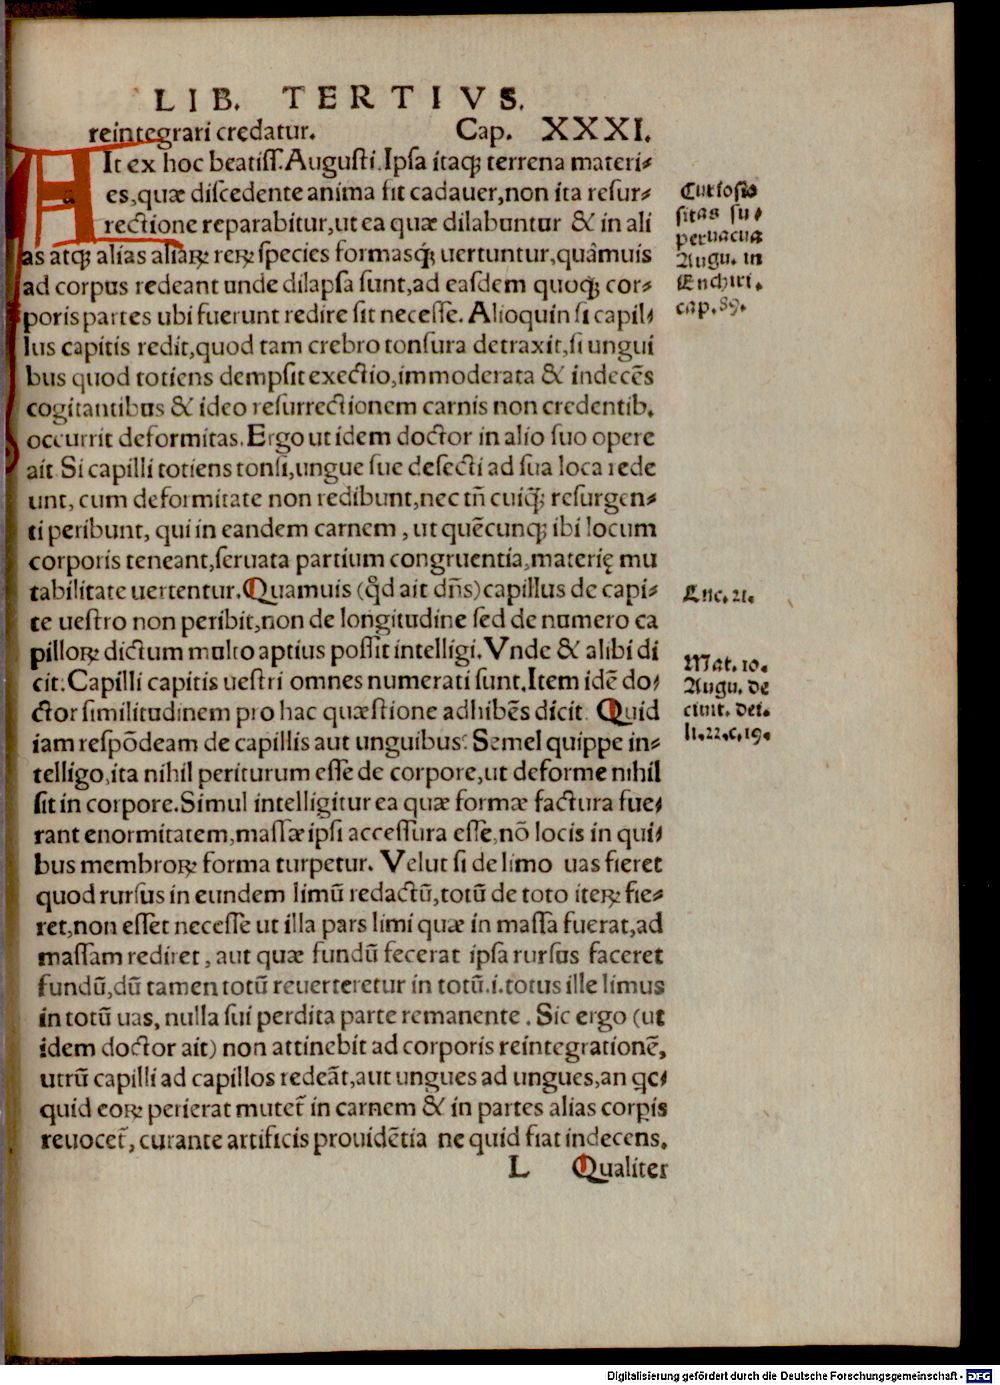 LIB. TERTIVS.
reintegrari credatur. Cap. XXXI.
AIt ex hoc beatiss. Augusti. Ipsa itaq; terrena materi-
es, quæ discedente anima fit cadauer, non ita resur-
rectione reparabitur, ut ea quæ dilabuntur & in ali
as atq; alias aliaꝝ reꝝ species formasq́; uertuntur, quâmuis
ad corpus redeant unde dilapsa sunt, ad easdem quoq; cor-
poris partes ubi fuerunt redire sit necesse. Alioquin si capil-
lus capitis redit, quod tam crebro tonsura detraxit, si ungui
bus quod totiens dempsit exectio, immoderata & indecẽs
cogitantibus & ideo resurrectionem carnis non credentib.
occurrit deformitas. Ergo ut idem doctor in alio suo opere
ait. Si capilli totiens tonsi, ungue sue desecti ad sua loca rede
unt, cum deformitate non redibunt, nec tñ cuiq́; resurgen-
ti peribunt, qui in eandem carnem, ut quẽcunq; ibi locum
corporis teneant, seruata partium congruentia, materię mu
tabilitate uertentur. Quamuis (qđ ait dñs) capillus de capi-
te uestro non peribit, non de longitudine sed de numero ca
pilloꝝ dictum multo aptius possit intelligi. Vnde & alibi di
cit: Capilli capitis uestri omnes numerati sunt. Item idẽ do-
ctor similitudinem pro hac quæstione adhibẽs dicit. Quid
iam respõdeam de capillis aut unguibus? Semel quippe in-
telligo, ita nihil periturum esse de corpore, ut deforme nihil
sit in corpore. Simul intelligitur ea quæ formæ factura fue-
rant enormitatem, massæ ipsi accessura esse, nõ locis in qui-
bus membroꝝ forma turpetur. Velut si de limo uas fieret
quod rursus in eundem limũ redactũ, totũ de toto iteꝝ fie-
ret, non esset necesse ut illa pars limi quæ in massa fuerat, ad
massam rediret, aut quæ fundũ fecerat ipsa rursus faceret
fundũ, dũ tamen totũ reuerteretur in totũ. i. totus ille limus
in totũ uas, nulla sui perdita parte remanente. Sic ergo (ut
idem doctor ait) non attinebit ad corporis reintegrationẽ,
utrũ capilli ad capillos redeãt, aut ungues ad ungues, an qc-
quid eoꝝ perierat mutet̃ in carnem & in partes alias corꝑis
reuocet̃, curante artificis prouidẽtia ne quid fiat indecens.
L Qualiter
Curiosio
sitas su-
peruacua
Augu. in
Enchiri.
cap. 89.
Enc. 21.
Mat. 10.
Augu. de
ciuit. dei.
li. 22. c. 19.
Digitalisierung gefördert durch die Deutsche Forschungsgemeinschaft - DFG